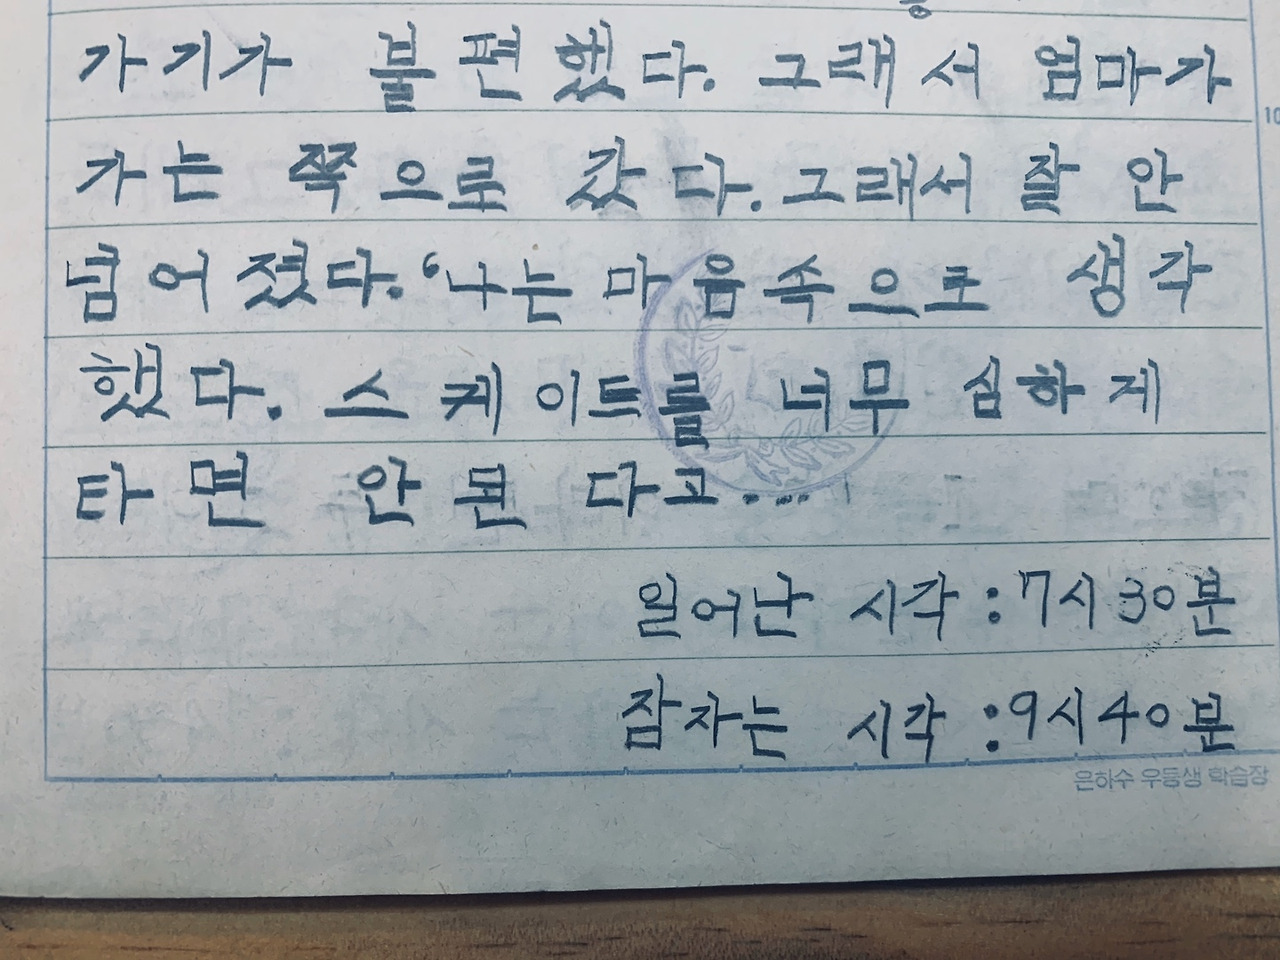 가기가 불편했다. 그래서 엄마가
10
가는 쪽으로 갔다. 그래서 잘 안
넘어졌다. ‘나는 마음속으로 생각
했다. 스케이트를 너무 심하게
타면 안 된다고....
일어난 시각 : 7시 30분
잠자는 시각 : 9시 40분
은하수 우등생 학습장